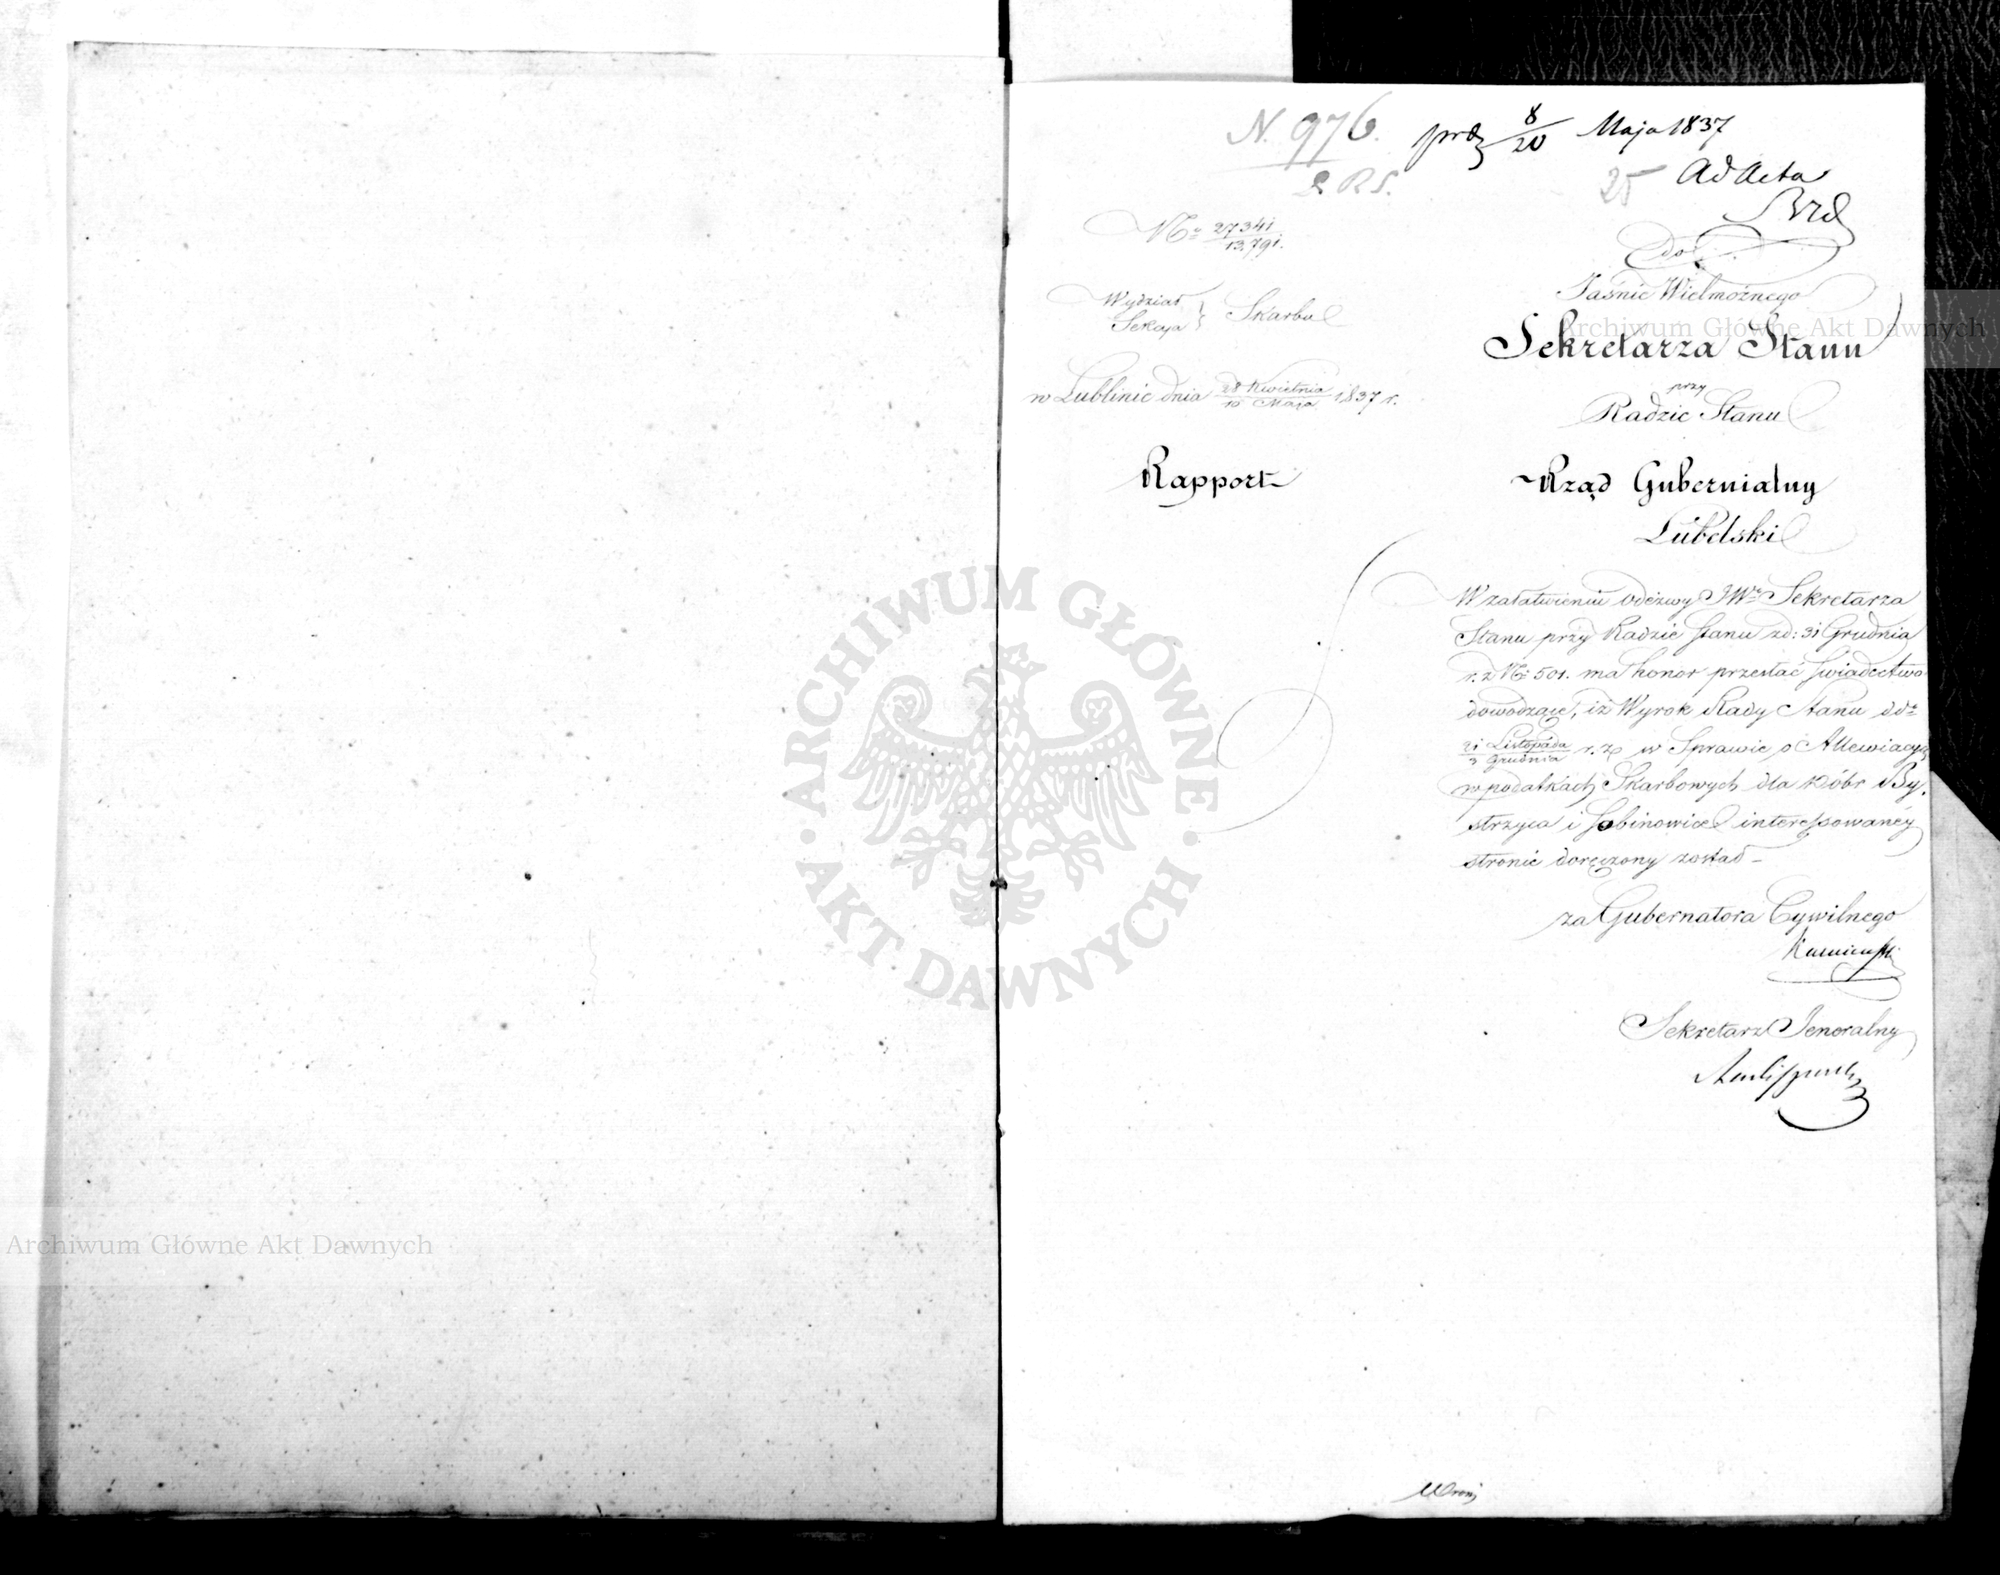 N. 976. prz 8/20 Maja 1837
R S. 25 Ad Acta
No 27341/13,791.
do
Wydział
Sekcja } Skarbu
Jaśnie Wielmożnego
Sekretarza Stanu
przy
w Lublinie dnia 28 Kwietnia/10 Maja 1837 r.
Radzie Stanu
Rapport
Rząd Gubernialny
Lubelski
W załatwieniu odezwy JWo Sekretarza
Stanu przy Radzie Stanu zd: 31 Grudnia
r. z No 501. ma honor przesłać świadectwo
dowodzące, iż Wyrok Rady Stanu dd
21 Listopada/3 Grudnia r. z w Sprawie o Allewiacyą
w podatkach Skarbowych dla Dóbr By,
strzyca i Sobinowice interessowaney
stronie doręczony został –
za Gubernatora Cywilnego
Sekretarz Jeneralny
ARCHIWUM GŁÓWNE
AKT DAWNYCH
Archiwum Główne Akt Dawnych
Archiwum Główne Akt Dawnych